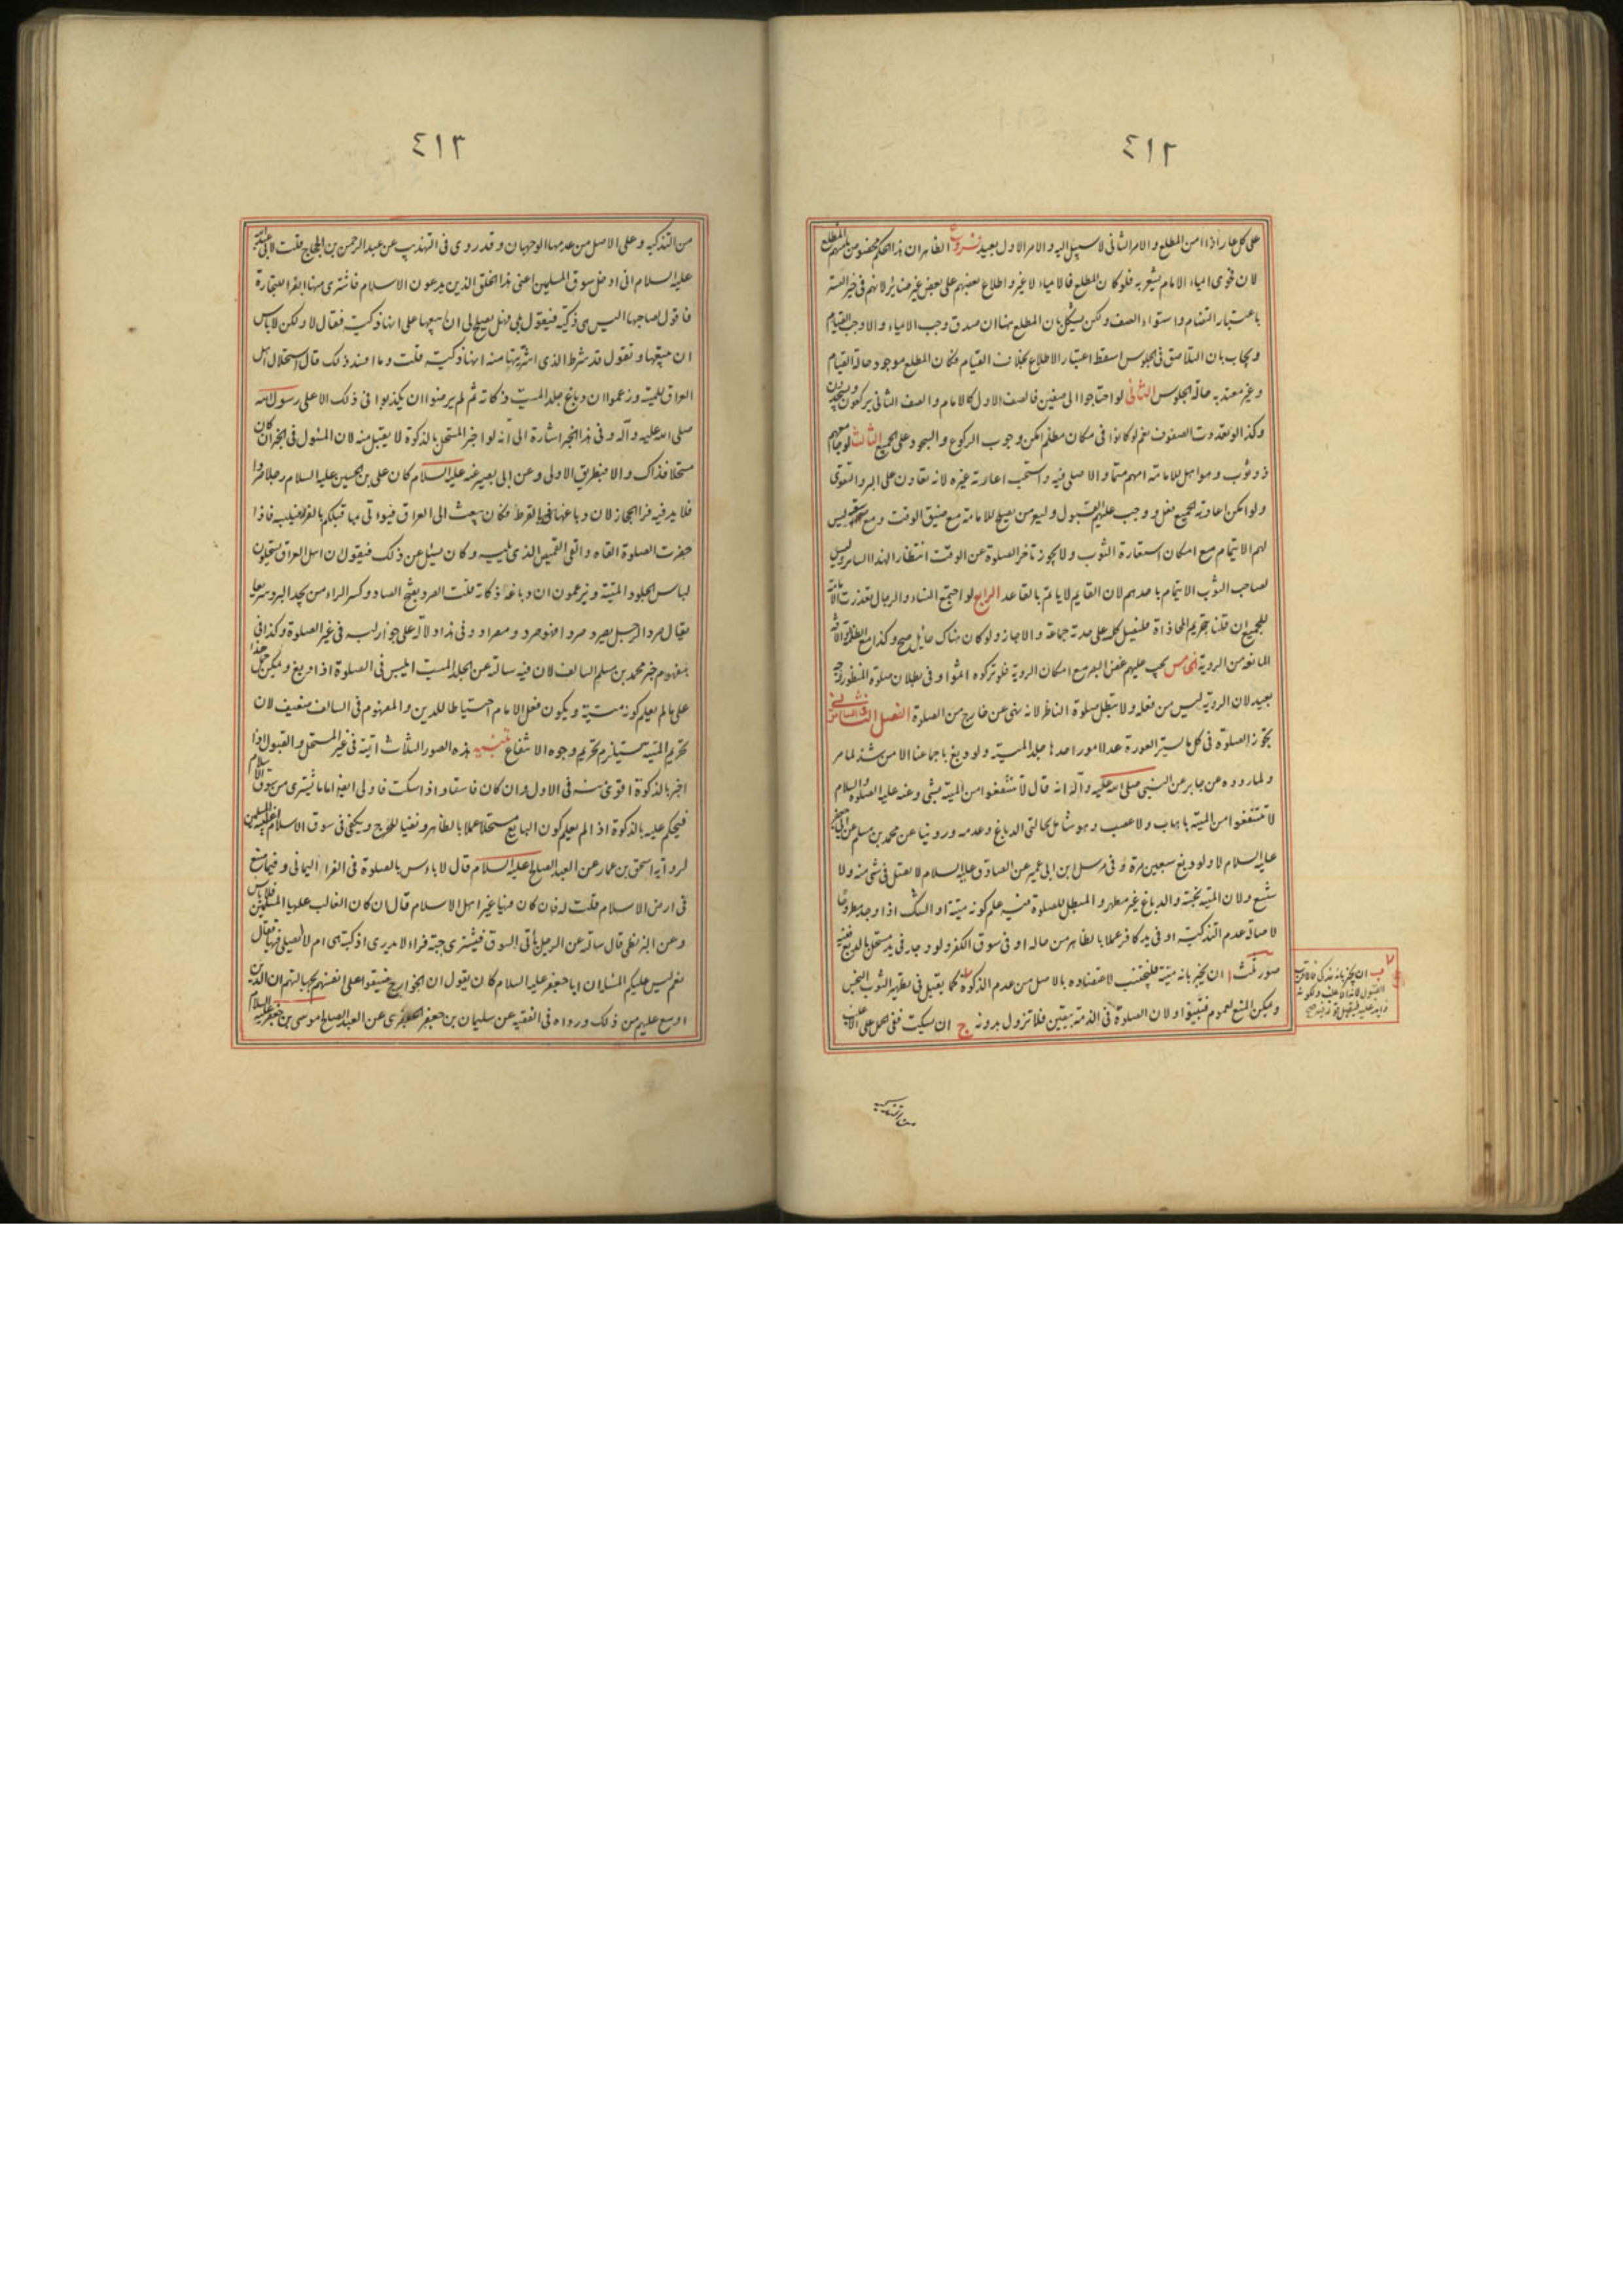 ٤١٢
على كل عار اذا امن المطلع والامر الثاني لا سبيل اليه والامر الاول بعيد فروع الظاهر ان هذا الحكم مخصوص بامنهم المطلع
لان فحوى ايماء الامام يشعر به فلو كان المطلع فالايماء لا غير واطلاع بعضهم على بعض غير ضائر لانهم في حيز التستر
باعتبار التضام واستواء الصف ولكن يشكل بان المطلع هنا ان صدق وجب الايماء والا وجب القيام
ويجاب بان التلاصق في الجلوس اسقط اعتبار الاطلاع بخلاف القيام فكان المطلع موجود حالة القيام
وغير معتد به حالة الجلوس الثاني لو احتاجوا الى صفين فالصف الاول كالامام والصف الثاني يركعون ويسجدون
وكذا لو تعددت الصفوف نعم لو كانوا في مكان مظلم امكن وجوب الركوع والسجود على الجميع الثالث لو جامعهم
ذو ثوب وهو اهل للامامة امهم متما والا صلى فيه واستحب اعارته غيره لانه تعاون على البر والتقوى
ولو امكن اعارته الجميع فعل ووجب عليهم القبول وليؤمن يصلح للامامة مع ضيق الوقت ومع سعته ليس
لهم الايتمام مع امكان استعارة الثوب ولا يجوز تأخر الصلوة عن الوقت انتظارا لهذا الساتر وليس
لصاحب الثوب الايتمام باحدهم لان القايم لا يأتم بالقاعد الرابع لو اجتمع النساء والرجال تعذرت الامامة
للجميع ان قلنا بتحريم المحاذاة فلتصل كل على حدته جماعة والا جاز ولو كان هناك حائل صح وكذا مع الظلمة
المانعة من الروية الخامس يجب عليهم غض البصر مع امكان الروية فلو تركوه اثموا وفي بطلان صلوة المنظور وجه
بعيد لان الروية ليس من فعله ولا يبطل صلوة الناظر لانه نهى عن خارج من الصلوة الفصل الثاني في الساتر
تجوز الصلوة في كل ما يستر العورة عدا امور احدها جلد الميتة ولو دبغ باجماعنا الا من شذ لما مر
ولما رووه عن جابر عن النبي صلى الله عليه وآله انه قال لا تنتفعوا من الميتة بشيء وعنه عليه الصلوة والسلام
لا تنتفعوا من الميتة باهاب ولا عصب وهو شامل لحالتي الدباغ وعدمه وروينا عن محمد بن مسلم عن ابي جعفر
عليه السلام لا ولو دبغ سبعين مرة وفي مرسل ابن ابي عمير عن الصادق عليه السلام لا تصل في شيء منه ولا
شسع ولان الميتة نجسة والدباغ غير مطهر والمبطل للصلوة فيه علم كونه ميتة او الشك اذا وجد مطروحا
لاصالة عدم التذكية او في يد كافر عملا بالظاهر من حاله او في سوق الكفر ولو وجد في يد مستحل بالدبغ ففيه
صور ثلث ا ان يخبر بانه ميتة فليجتنب لاعتضاده بالاصل من عدم الذكوة كما يقبل في تطهير الثوب النجس
ويمكن المنع لعموم فتبينوا ولان الصلوة في الذمة بيقين فلا تزول بدونه ج ان يسكت ففي الحمل على الاغلب
ب ان يخبر بانه مذكى فالاقرب
القبول لانه الاغلب ولكونه
ذا يد عليه
من التذكية
٤١٣
من التذكية وعلى الاصل من عدمها الوجهان وقد روى في التهذيب عن عبد الرحمن بن الحجاج قلت لابي عبد الله
عليه السلام اني ادخل سوق المسلمين اعني هذا الخلق الذين يدعون الاسلام فاشتري منها الفراء للتجارة
فاقول لصاحبها اليس هي ذكية فيقول بلى فهل يصلح لي ان ابيعها على انها ذكية فقال لا ولكن لا باس
ان تبيعها وتقول قد شرط الذي اشتريتها منه انها ذكية قلت وما افسد ذلك قال استحلال اهل
العراق للميتة وزعموا ان دباغ جلد الميتة ذكاته ثم لم يرضوا ان يكذبوا في ذلك الا على رسول الله
صلى الله عليه وآله وفي هذا الخبر اشارة الى انه لو اخبر المستحل بالذكوة لا يقبل منه لان المسئول في الخبر ان كان
مستحلا فذاك والا فبطريق الاولى وعن ابي بصير عنه عليه السلام كان علي بن الحسين عليه السلام رجلا صردا
فلا يدفيه فرا الحجاز لان دباغها بالقرظ فكان يبعث الى العراق فيؤتى مما قبلكم بالفرو فيلبسه فاذا
حضرت الصلوة القاه والقى القميص الذي يليه وكان يسئل عن ذلك فيقول ان اهل العراق يستحلون
لباس الجلود الميتة ويزعمون ان دباغه ذكاته قلت الصرد بفتح الصاد وكسر الراء من يجد البرد سريعا
يقال صرد الرجل يصرد صردا فهو صرد ومصراد وفي هذا دلالة على جواز لبسه في غير الصلوة وكذا في
مفهوم خبر محمد بن مسلم السالف لان فيه سالته عن الجلد الميت ايلبس في الصلوة اذا دبغ ويمكن حمل هذا
على ما لم يعلم كونه ميتة ويكون فعل الامام احتياطا للدين والمفهوم في السالف ضعيف لان
تحريم الميتة يستلزم تحريم وجوه الانتفاع تنبيه هذه الصور الثلاث اتية في غير المستحل والقبول اذا
اخبر بالذكوة اقوى منه في الاول وان كان فاسقا واذا سكت فاولى ايضا اما ما يشترى من سوق الاسلام
فيحكم عليه بالذكوة اذا لم يعلم كون البايع مستحلا عملا بالظاهر ونفيا للحرج ويكفي في سوق الاسلام اغلبية المسلمين
لرواية اسحق بن عمار عن العبد الصالح عليه السلام قال لا باس بالصلوة في الفراء اليماني وفيما صنع
في ارض الاسلام قلت له فان كان فيها غير اهل الاسلام قال ان كان الغالب عليها المسلمين فلا باس
وعن البزنطي قال سالته عن الرجل يأتي السوق فيشتري جبة فراء لا يدري اذكية هي ام لا ايصلي فيها فقال
نعم ليس عليكم المسئلة ان ابا جعفر عليه السلام كان يقول ان الخوارج ضيقوا على انفسهم بجهالتهم ان الدين
اوسع عليهم من ذلك ورواه في الفقيه عن سليمان بن جعفر الجعفري عن العبد الصالح موسى بن جعفر عليه السلام